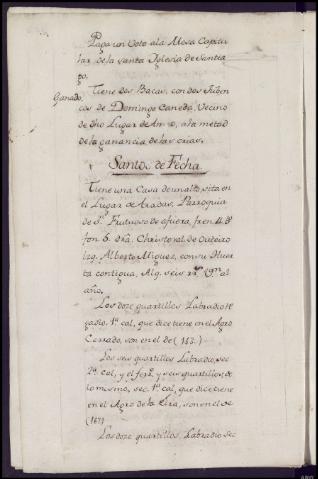 Paga un Voto ala Mesa Capitu
lar, de la Santa Iglesia de Santia
go.
Ganado. Tiene dos Bacas, con dos Jubon
cos de Domingo Caneda, Vecino
de dho Lugar de, ala metad
de la ganancia de las crias.
Santos de Fecha
Tiene una Casa de un alto, sita en
el Lugar de Aradas, Parroquia
de Sn. Frutuoso de afuera, fren. 4. Bs
fon. 6. dra. Christoval de Outeiro
Izq. Alberto Miguez, con su Huer
ta contigua, Alq. seis rs. Vn. al
año.
Los doze quartillos Labradio re
gadio, 1a. cal, que dice tiene en el Agro
Cerrado, son en el de (183.)
Los seis quartillos Labradio, sec
2a. cal, y seis quartillos, de
lo mismo, sec. 1a. cal, que dice tiene
en el Agro de la Eira, son en el de
(187)
Los doze quartillos, Labradio sec